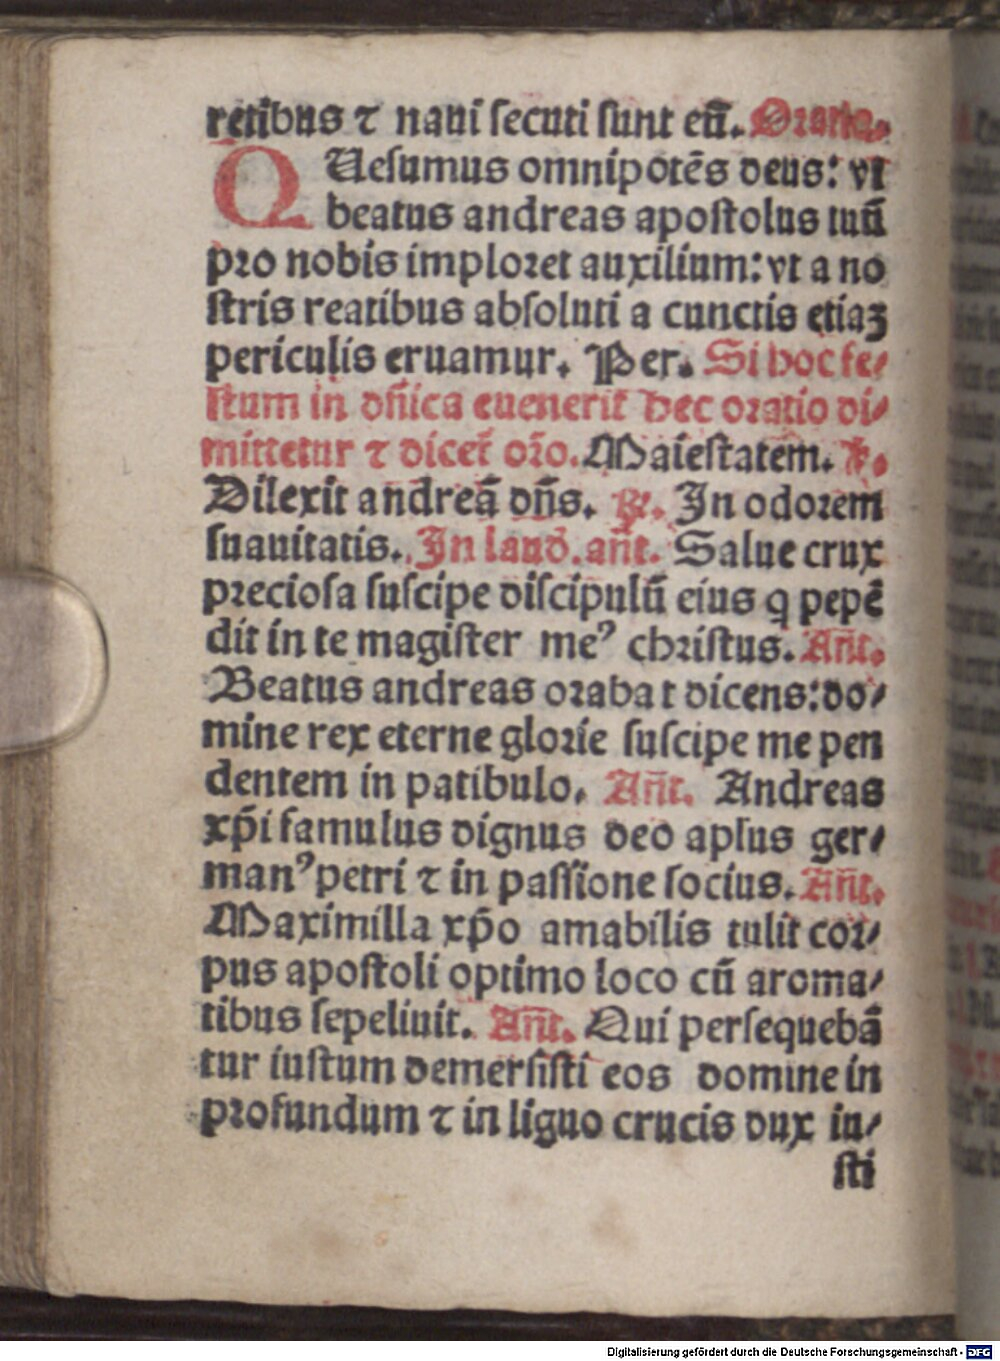 retibus ⁊ naui ſecuti ſunt eū. Oratio.
QUeſumus omnipotēs deus: vt
beatus andreas apoſtolus tuū
pro nobis imploret auxilium: vt a no
ſtris reatibus abſoluti a cunctis etiaꝫ
periculis eruamur. Per. Si hoc fe/
ſtum in dn̄ica euenerit hec oratio di/
mittetur ⁊ dicet᷑ oro̅. Maieſtatem. ℣.
Dilexit andreā dn̄s. ℟. In odorem
ſuauitatis. In laud̄. an̄t. Salue crux
precioſa ſuſcipe diſcipulū eius q pepē
dit in te magiſter meꝰ chriſtus. An̄t.
Beatus andreas orabat dicens: do/
mine rex eterne glorie ſuſcipe me pen
dentem in patibulo. An̄t. Andreas
xp̄i famulus dignus deo apſus ger/
manꝰ petri ⁊ in paſſione ſocius. An̄t.
Maximilla xp̄o amabilis tulit cor/
pus apoſtoli optimo loco cū aroma/
tibus ſepeliuit. An̄t. Qui perſequebā
tur iuſtum demerſiſti eos domine in
profundum ⁊ in liguo crucis dux iu/
ſti
Digitalisierung gefördert durch die Deutsche Forschungsgemeinschaft - DFG